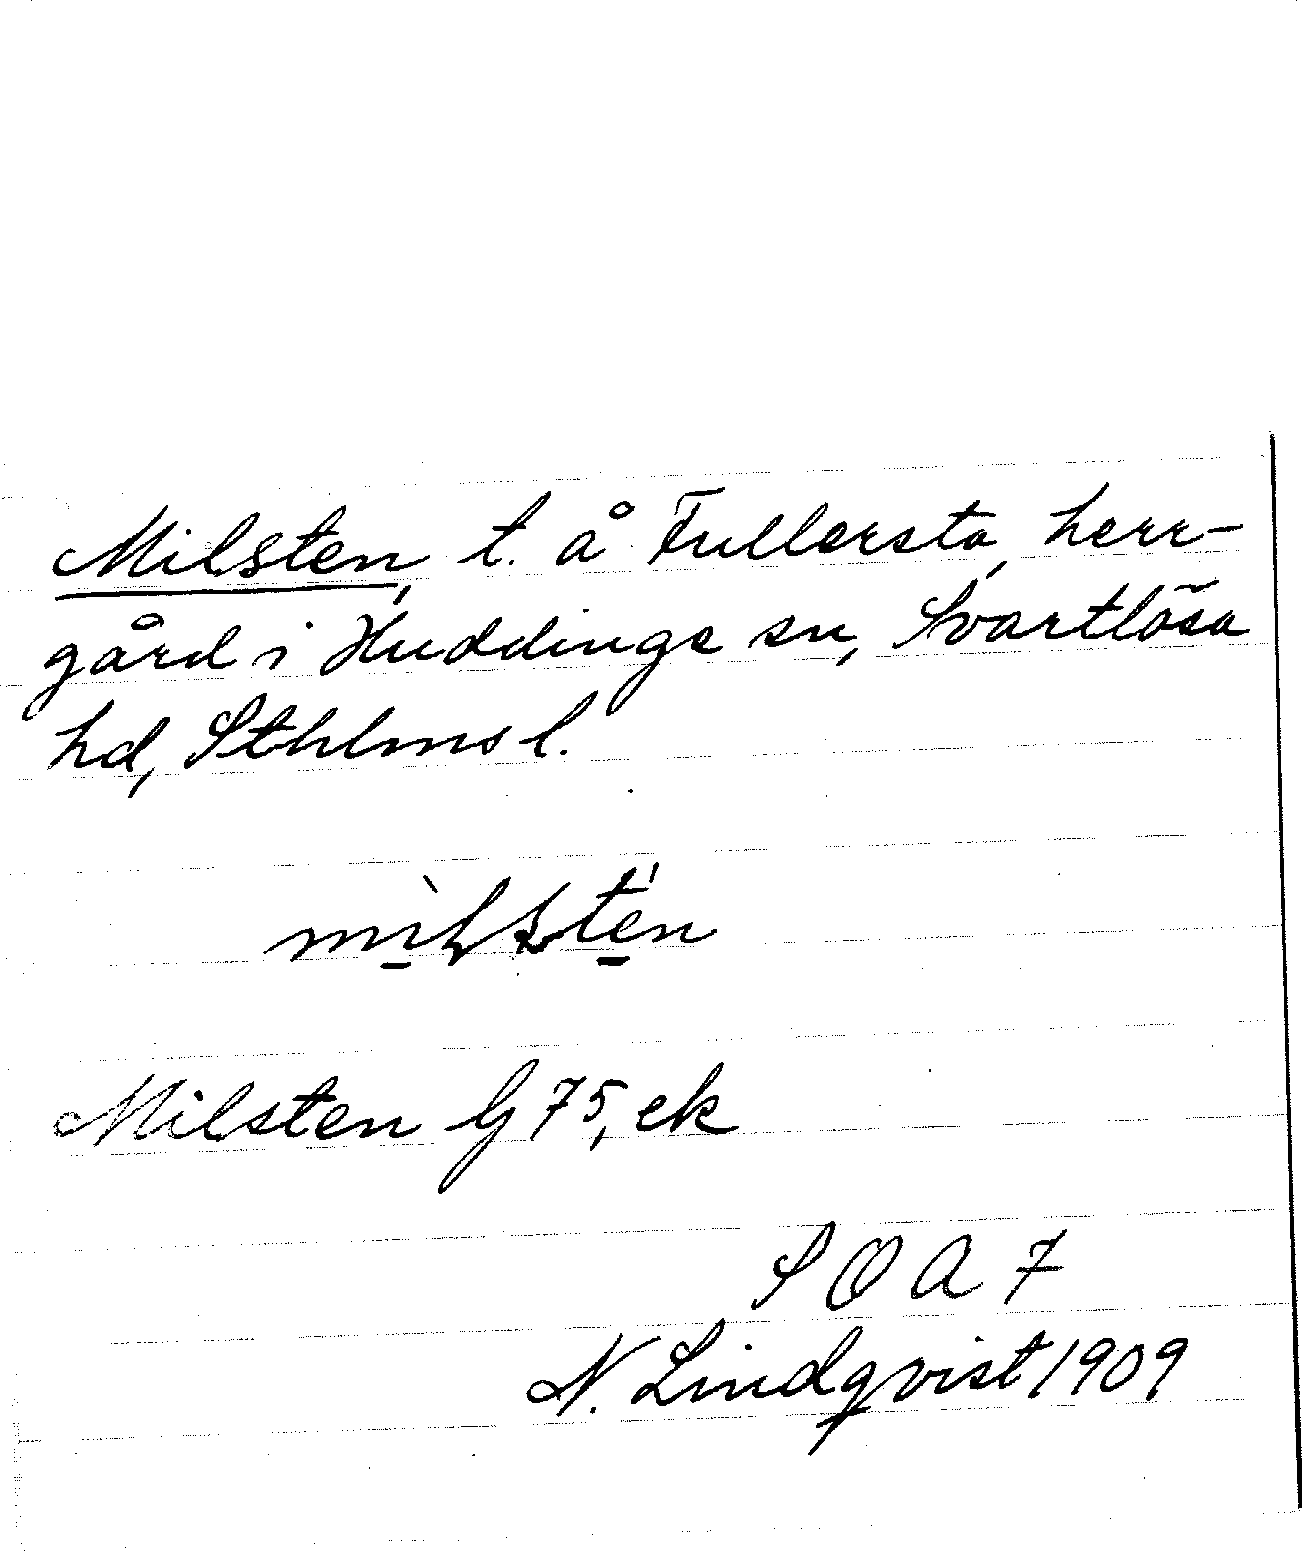 Milsten, t. å Fullersta herr-
gård i Huddinge sn, Svartlösa
hd, Sthlms l.
Milsten G 75, ek
SOA 7
N. Lindqvist 1909